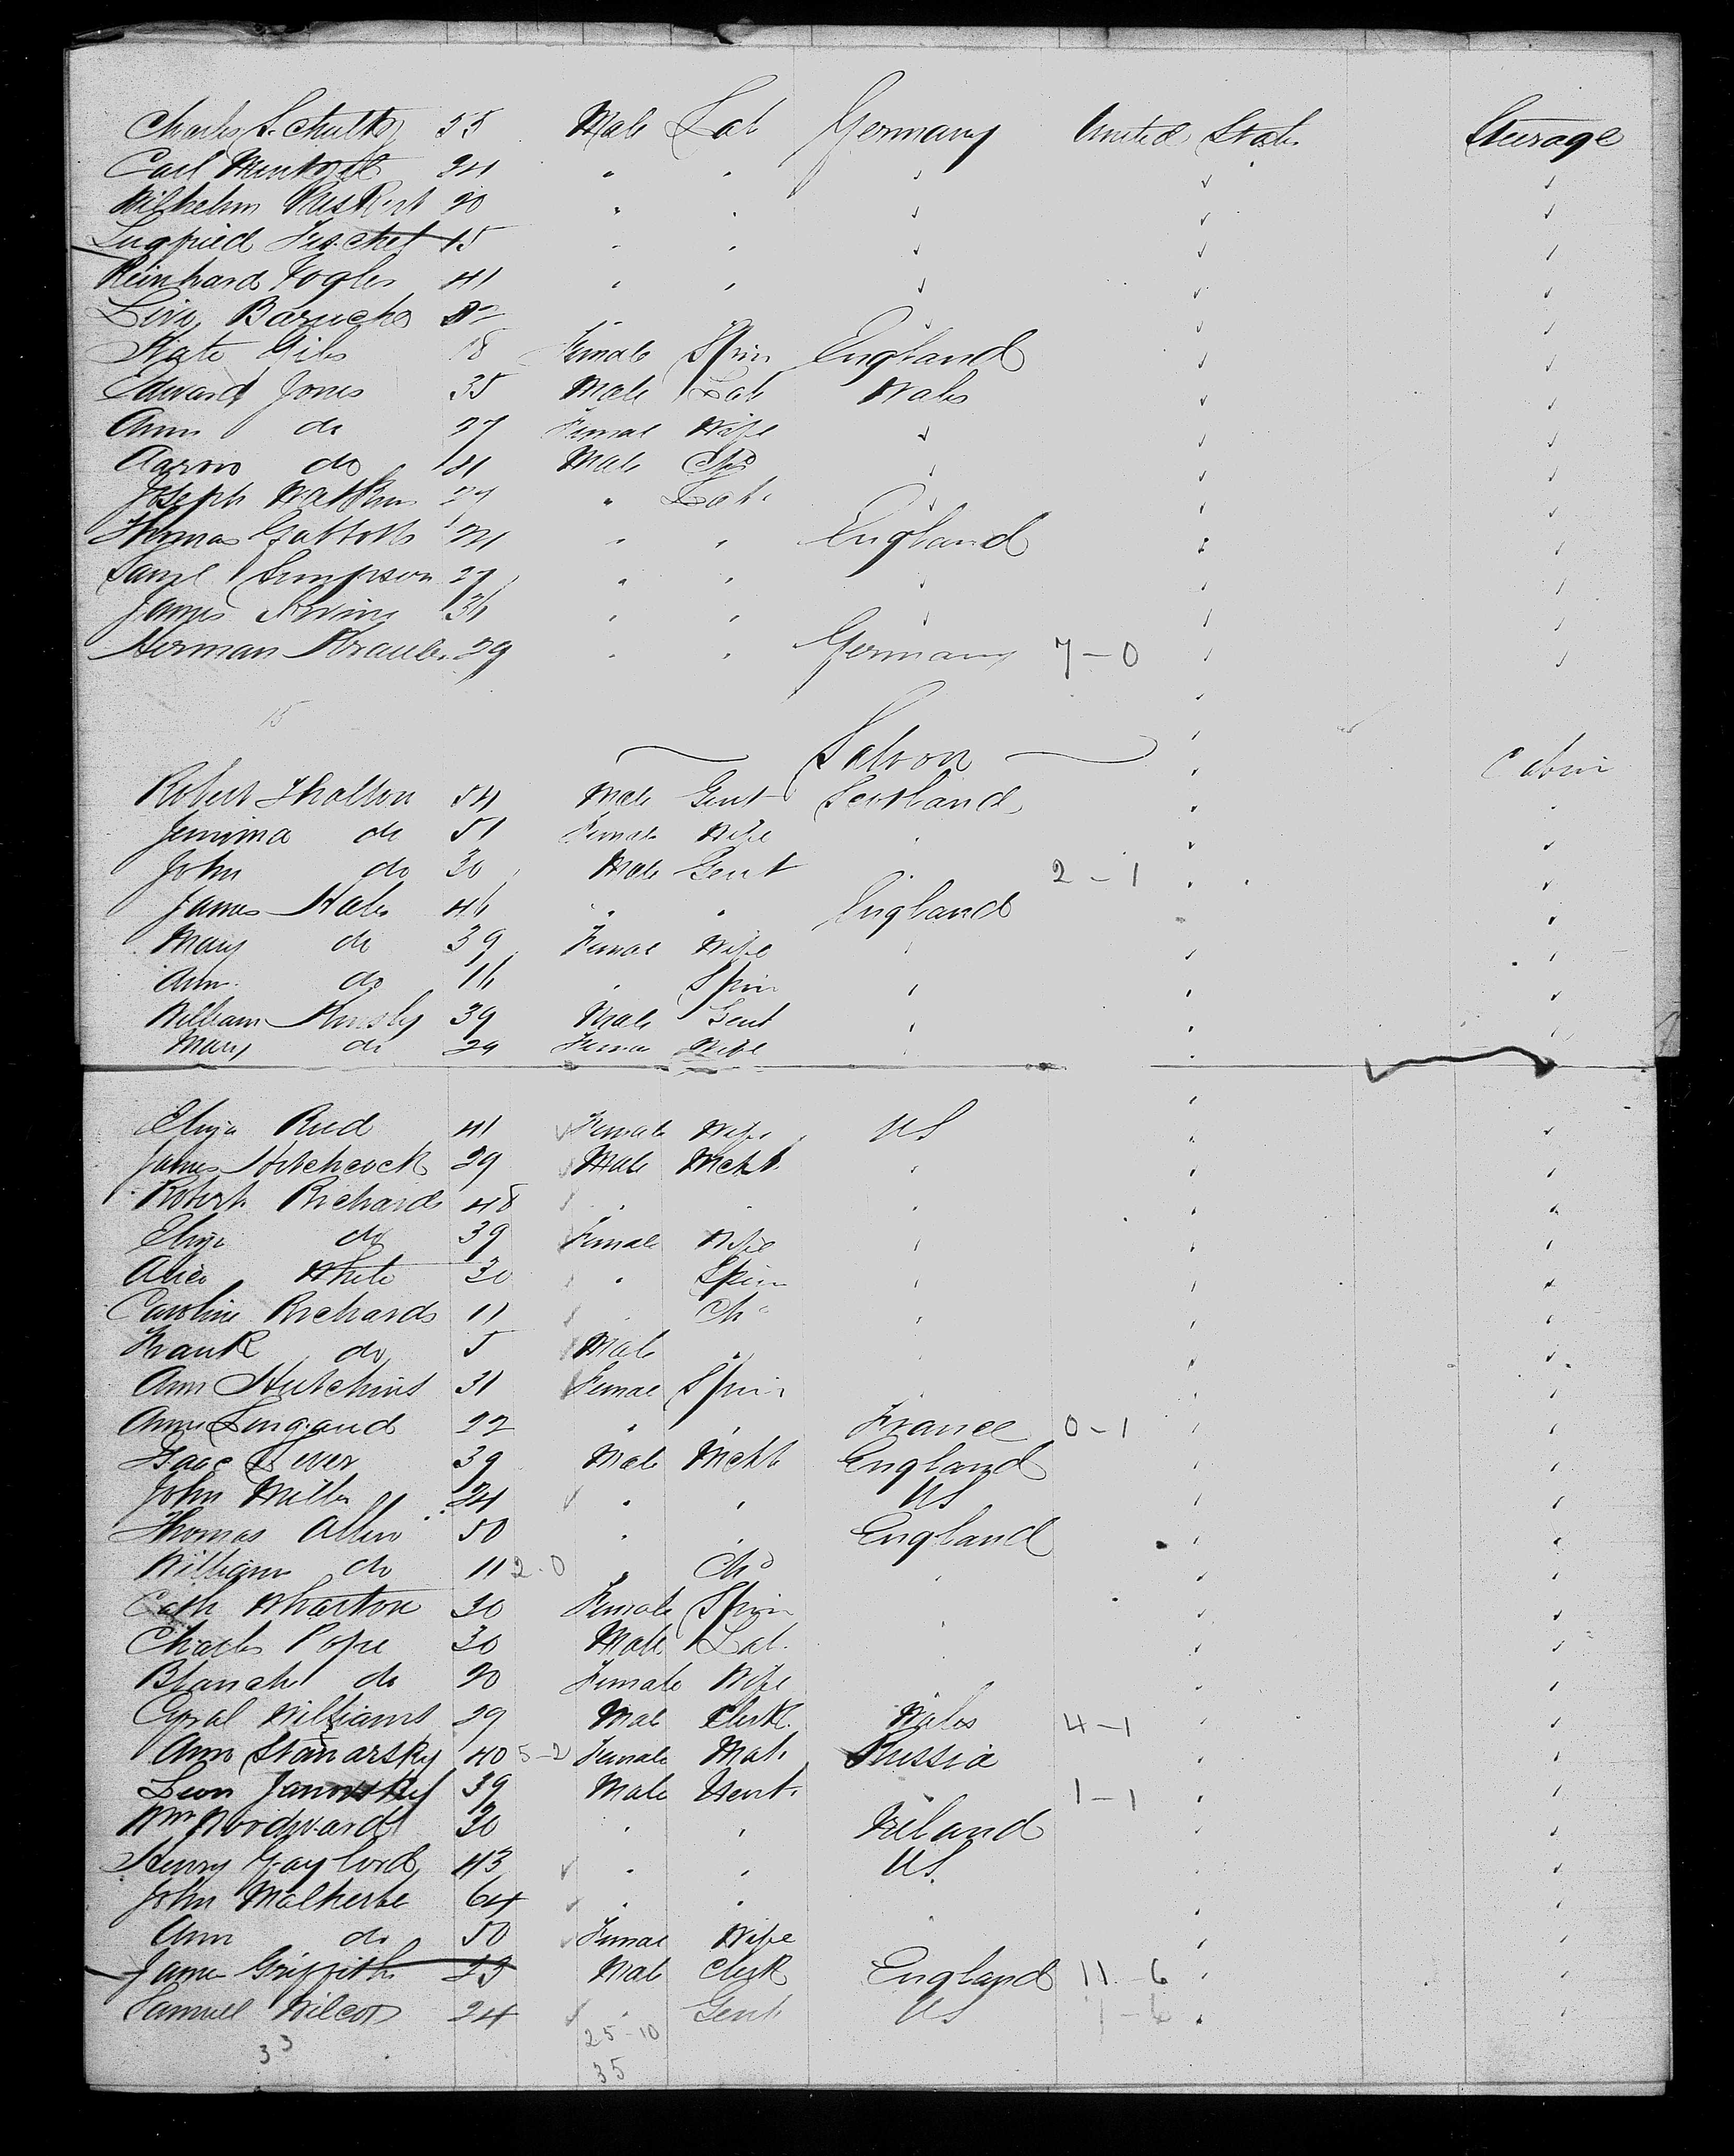 Charles Schultz 55 Male Lab Germany United States Steerage
Carl 24 " " ✓ ✓ ✓
Wilhelm 20 " " ✓ ✓ ✓
15 " " ✓ ✓ ✓
Reinhard Vogler 41 " " ✓ ✓ ✓
Levi Baruch " " ✓ ✓ ✓
Kate Giles 18 Female Spin England ✓ ✓
Edward Jones 35 Male Lab Wales ✓ ✓
Ann do 27 Female Wife ✓ ✓ ✓
Aaron do Male Chd ✓ ✓ ✓
Joseph Watkins 27 " Lab ✓ ✓ ✓
Thomas 24 " " England ✓ ✓
Saml Simpson 27 " " ✓ ✓ ✓
James 36 " " ✓ ✓ ✓
Herman 29 " " Germany 7-0 ✓ ✓
15
Saloon Cabin
Robert 54 Male Gent Scotland
Jemima do 51 Female Wife "
John do 30 Male Gent " 2-1
James Hales 46 " " England
Mary do 39 Female Wife "
Ann do 16 " Spin "
William 39 Male Gent "
Mary do 29 Female Wife "
Eliza Reed 41 ✓ Female Wife US
James Hitchcock 29 ✓ Male Mcht "
Robert Richards 48 ✓ " " "
Eliza do 39 ✓ Female Wife "
Alice White 30 " Spin "
Caroline Richards 11 " Chd "
Frank do 5 Male " "
Ann Hutchins 31 Female Spin "
Anne 22 " " France 0-1
Isaac 39 Male Mcht England
John Miller 24 ✓ " " US
Thomas Allen 50 " " England
William do 11 2-0 " Chd "
Cath Wharton 30 Female Spin "
Charles Pope 30 Male Lab "
Blanch do 20 Female Wife
Williams 29 Male Clerk Wales 4-1
Ann 40 5-2 Female Russia
Leon 39 Male Gent " 1-1
Wm Woodward 30 " " Ireland
Henry Gaylord 43 ✓ " " US
John Malherbe 64 ✓ " " "
Ann do 50 ✓ Female Wife "
James Griffiths 23 Male Clerk England 11-6
Samuel Wilcox 24 ✓ " Gent US
33 25-10
35